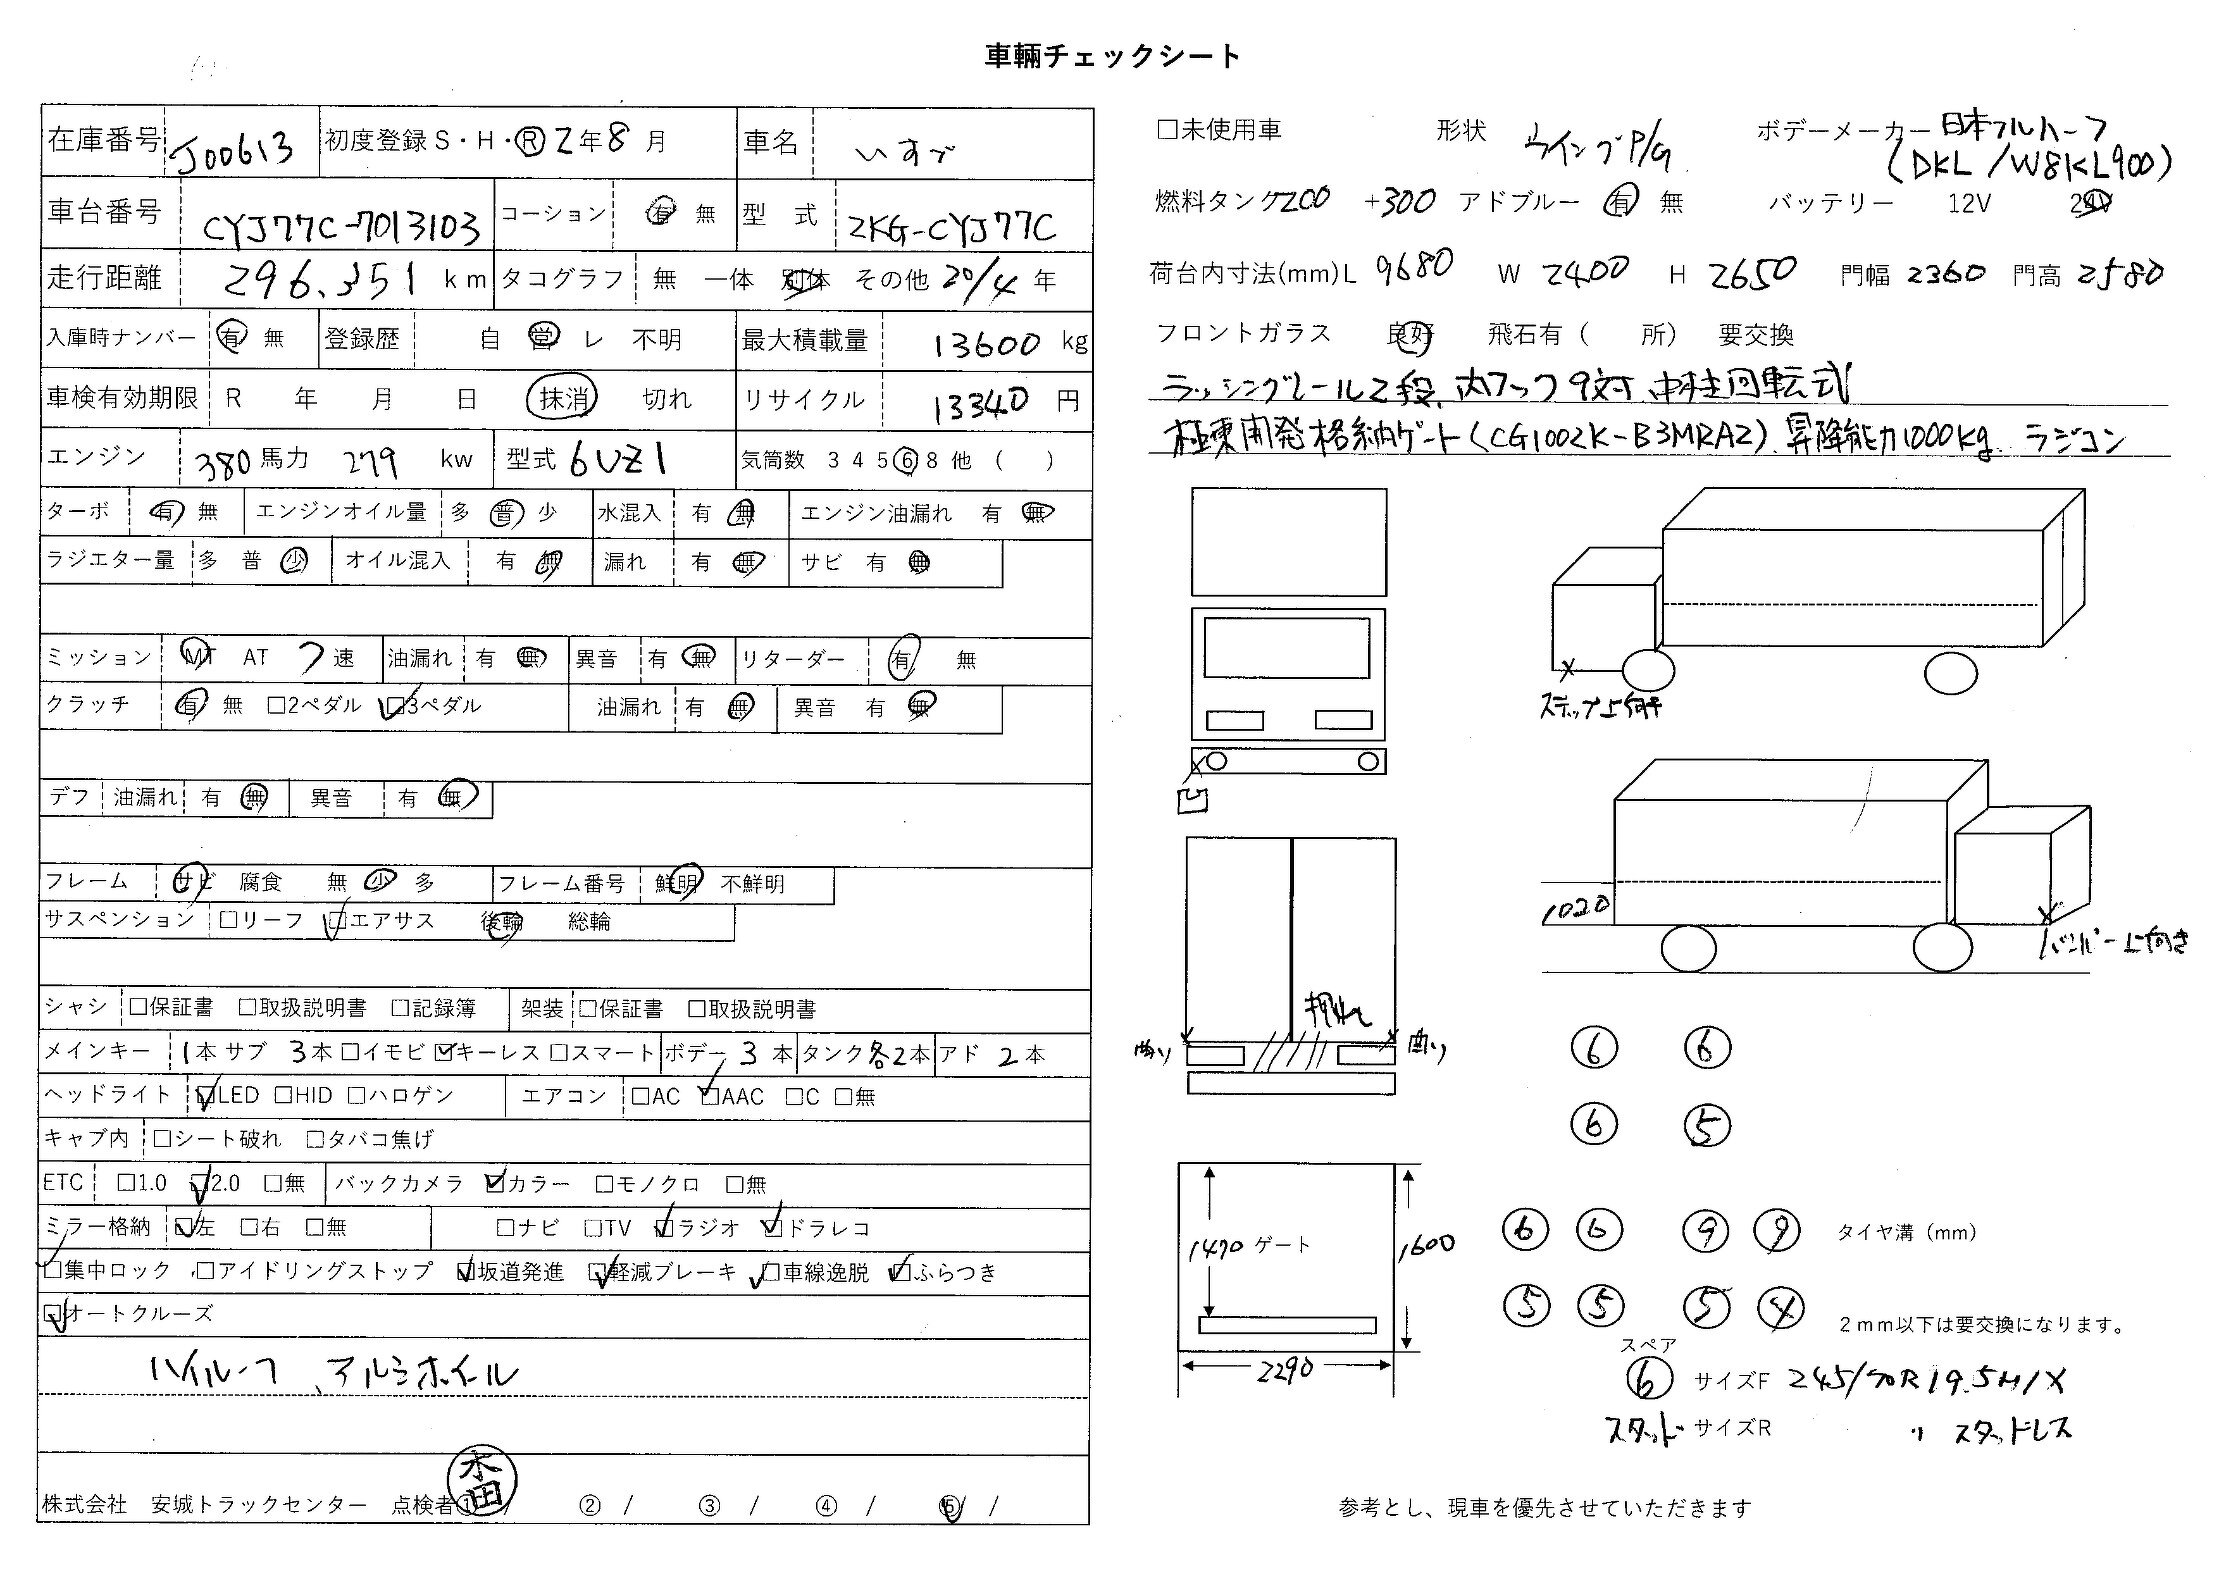 車輛チェックシート
在庫番号 J00613 初度登録 S・H・Ⓡ 2年8月 車名 いすゞ
車台番号 CYJ77C-7013103 コーション 有 無 型 式 2KG-CYJ77C
走行距離 296,351 km タコグラフ 無 一体 別体 その他 20/4 年
入庫時ナンバー 有 無 登録歴 自 営 レ 不明 最大積載量 13600 kg
車検有効期限 R 年 月 日 抹消 切れ リサイクル 13340 円
エンジン 380 馬力 279 kw 型式 6UZ1 気筒数 3 4 5 6 8 他 ( )
ターボ 有 無 エンジンオイル量 多 普 少 水混入 有 無 エンジン油漏れ 有 無
ラジエター量 多 普 少 オイル混入 有 無 漏れ 有 無 サビ 有 無
ミッション MT AT 7 速 油漏れ 有 無 異音 有 無 リターダー 有 無
クラッチ 有 無 □2ペダル ☑3ペダル 油漏れ 有 無 異音 有 無
デフ 油漏れ 有 無 異音 有 無
フレーム サビ 腐食 無 少 多 フレーム番号 鮮明 不鮮明
サスペンション □リーフ ☑エアサス 後輪 総輪
シャシ □保証書 □取扱説明書 □記録簿 架装 □保証書 □取扱説明書
メインキー 1本 サブ 3本 □イモビ ☑キーレス □スマート ボデー 3 本 タンク 各2本 アド 2本
ヘッドライト ☑LED □HID □ハロゲン エアコン □AC ☑AAC □C □無
キャブ内 □シート破れ □タバコ焦げ
ETC □1.0 ☑2.0 □無 バックカメラ ☑カラー □モノクロ □無
ミラー格納 ☑左 □右 □無 □ナビ □TV ☑ラジオ ☑ドラレコ
☑集中ロック □アイドリングストップ ☑坂道発進 ☑軽減ブレーキ ☑車線逸脱 ☑ふらつき
☑オートクルーズ
ハイルーフ、アルミホイール
株式会社 安城トラックセンター 点検者① / ② / ③ / ④ / ⑤ /
□未使用車 形状 ウイングP/G ボデーメーカー 日本フルハーフ
(DKL/W8KL900)
燃料タンク 200 +300 アドブルー 有 無 バッテリー 12V 24V
荷台内寸法(mm)L 9680 W 2400 H 2650 門幅 2360 門高 2580
フロントガラス 良好 飛石有 ( 所) 要交換
ラッシングレール2段、内フック9対、中柱回転式
極東開発格納ゲート(CG1002K-B3MRA2)、昇降能力1000kg、ラジコン
ステップ上向き
凹
1020
バンパー上向き
曲り 曲り
6 6
6 5
6 6 9 9 タイヤ溝(mm)
5 5 5 4
2mm以下は要交換になります。
1470 ゲート 1600
2290
スペア
6 サイズF 245/70R19.5 MIX
スタッド サイズR 〃 スタッドレス
参考とし、現車を優先させていただきます